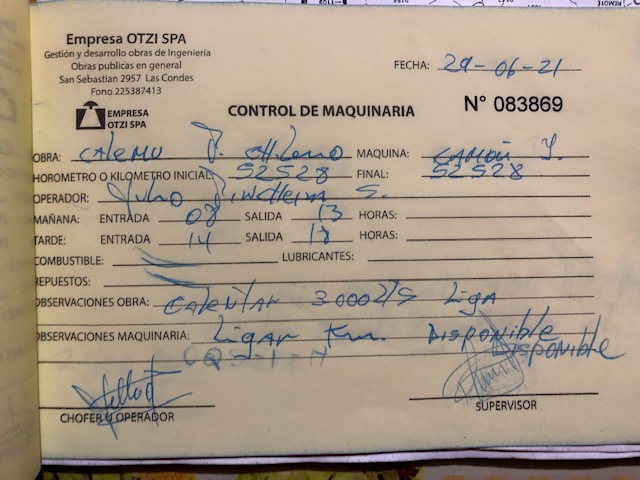 Empresa OTZI SPA
Gestión y desarrollo obras de Ingeniería
Obras publicas en general
San Sebastian 2957 Las Condes
Fono 225387413
FECHA: 29-06-21
EMPRESA
OTZI SPA
CONTROL DE MAQUINARIA
N° 083869
OBRA: P. MAQUINA: CAMION
HOROMETRO O KILOMETRO INICIAL: 52528 FINAL: 52528
OPERADOR: Julio S.
MAÑANA: ENTRADA 08 SALIDA 13 HORAS:
TARDE: ENTRADA 14 SALIDA 17 HORAS:
COMBUSTIBLE: LUBRICANTES:
REPUESTOS:
OBSERVACIONES OBRA: 3000
OBSERVACIONES MAQUINARIA: Disponible
Disponible
CHOFER U OPERADOR
SUPERVISOR